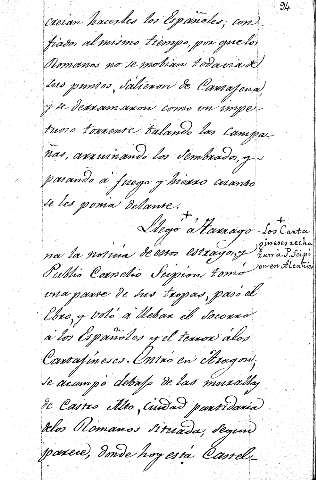 94
creian hacerles los Españoles; con-
fiados al mismo tiempo, por que los
Romanos no se movian todavia de
sus puntos, salieron de Cartagena
y se derramaron como un impe-
tuoso torrente talando las campa-
ñas, arruinando los sembrados, y
pasando á fuego y hierro cuanto
se les ponia delante.
Llegó + á Tarrago-
na la noticia de estos estragos, y
Publio Cornelio Scipion tomó
una parte de sus tropas, pasó el
Ebro, y voló á llebar el socorro
á los Españoles y el terror á los
Cartagineses. Entró en Aragon,
se acampó debajo de las murallas
de Castro Alto, Ciudad partidaria
de los Romanos situada, segun
parece, donde hoy esta Castel-
+
Los Carta
gineses recha
á P. Scipi
on en